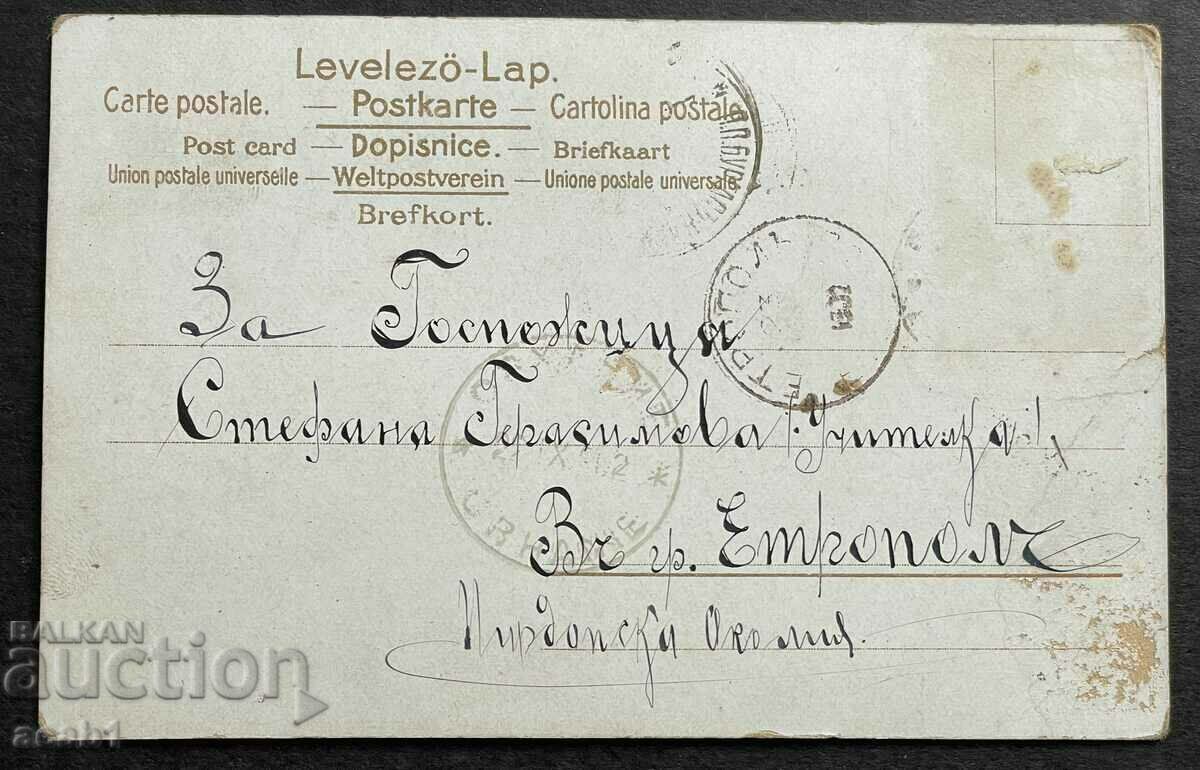 Levelezö-Lap.
Carte postale. — Postkarte — Cartolina postale
Post card — Dopisnice. — Briefkaart
Union postale universelle — Weltpostverein — Unione postale universale
Brefkort.
За Госпожица
Стефана Герасимова /: Учителка :/
Въ гр. Етрополъ
Пирдопска Околия.
ЕТРОПОЛЪ
BALKAN
auction
acab1